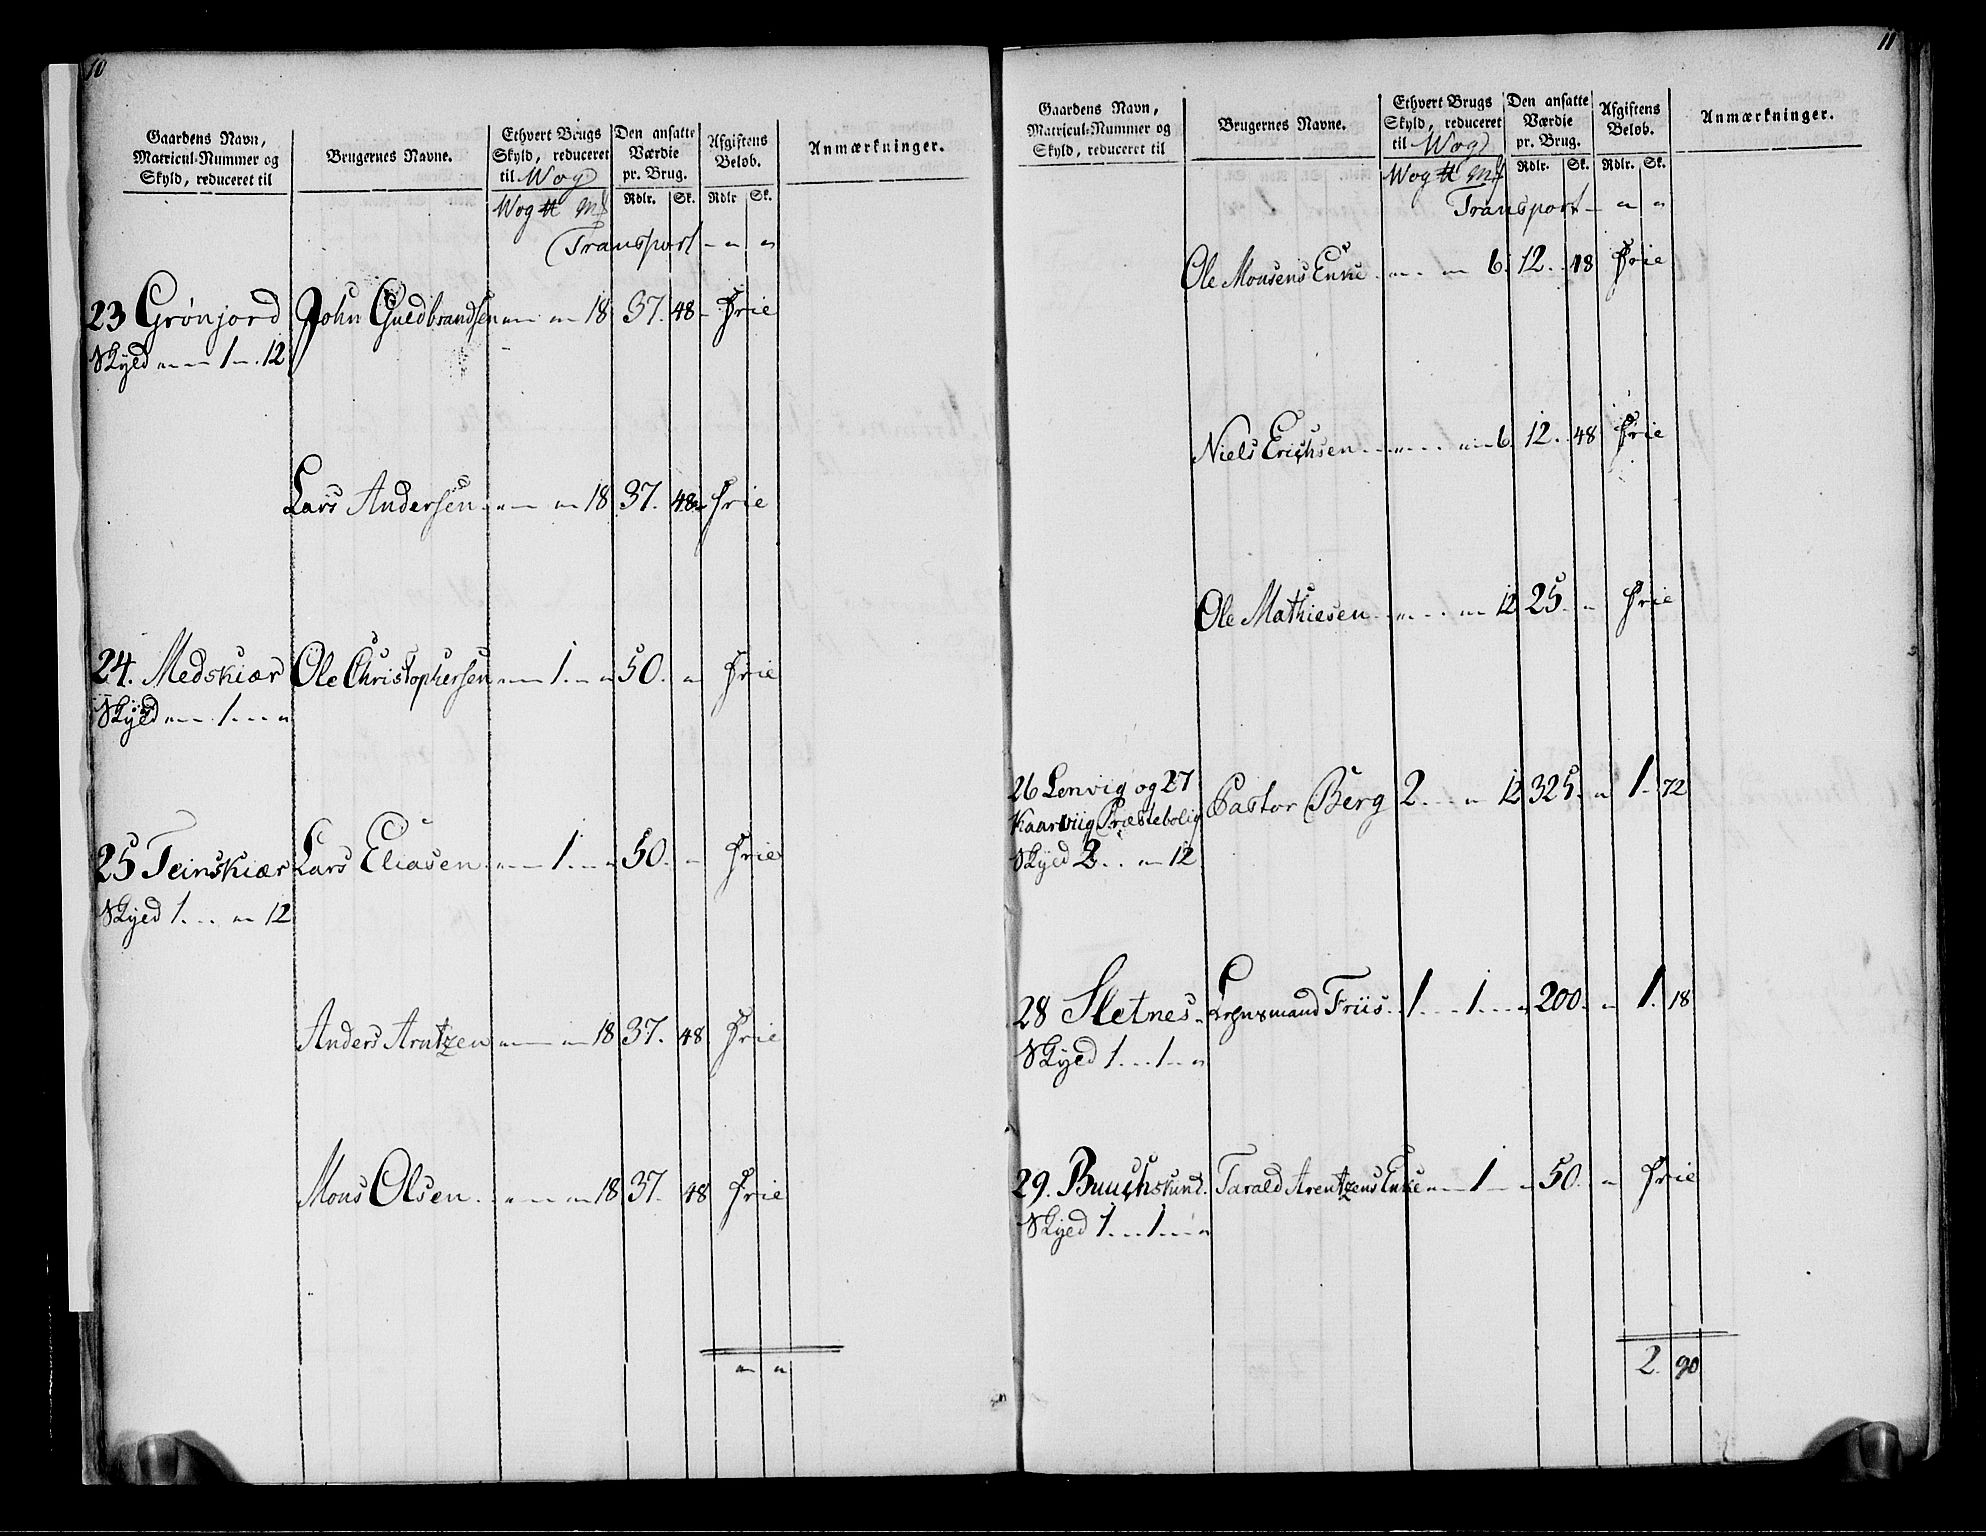 10
Gaardens Navn, Matricul-Nummer og Skyld, reduceret til
Brugernes Navne.
Ethvert Brugs Skyld, reduceret til Wog
Den ansatte Værdie pr. Brug.
Afgiftens Beløb.
Anmærkninger.
Wog ℔ Mḷ Rdlr. Sk. Rdlr Sk.
Transport - " "
23 Grönjord John Guldbrandsen " " 18 37. 48 - Frie
Skyld " 1 - 12
Lars Andersen " " 18 37. 48 - Frie
24. Medskiær Ole Christophersen " 1 " 50. " Frie
Skyld " 1 "
25 Teinskiær Lars Eliasen " 1 " 50. " Frie
Skyld 1 " 12
Anders Arntzen " " 18 37. 48 Frie
Mons Olsen " " 18 37. 48 Frie
" "
11
Gaardens Navn, Matricul-Nummer og Skyld, reduceret til
Brugernes Navne.
Ethvert Brugs Skyld, reduceret til Wog
Den ansatte Værdie pr. Brug.
Afgiftens Beløb.
Anmærkninger.
Wog ℔ Mḷ Rdlr. Sk. Rdlr. Sk.
Transport - " "
Ole Monsens Enke " " 6. 12. 48 Frie
Niels Erichsen " " 6. 12. 48 Frie
Ole Mathiesen " " 12 25. " Frie
26 Lenvig og 27
Kaarviig Præstebolig Pastor Berg 2 " 12 325. " 1. 72
Skyld 2 " 12
28 Sletnes Lensmand Friis 1 1 " 200. " 1. 18
Skyld 1 1 "
29. Buuchskind Tarald Arentzens Enke " 1 " 50. " Frie
Skyld 1 1 "
2. 90